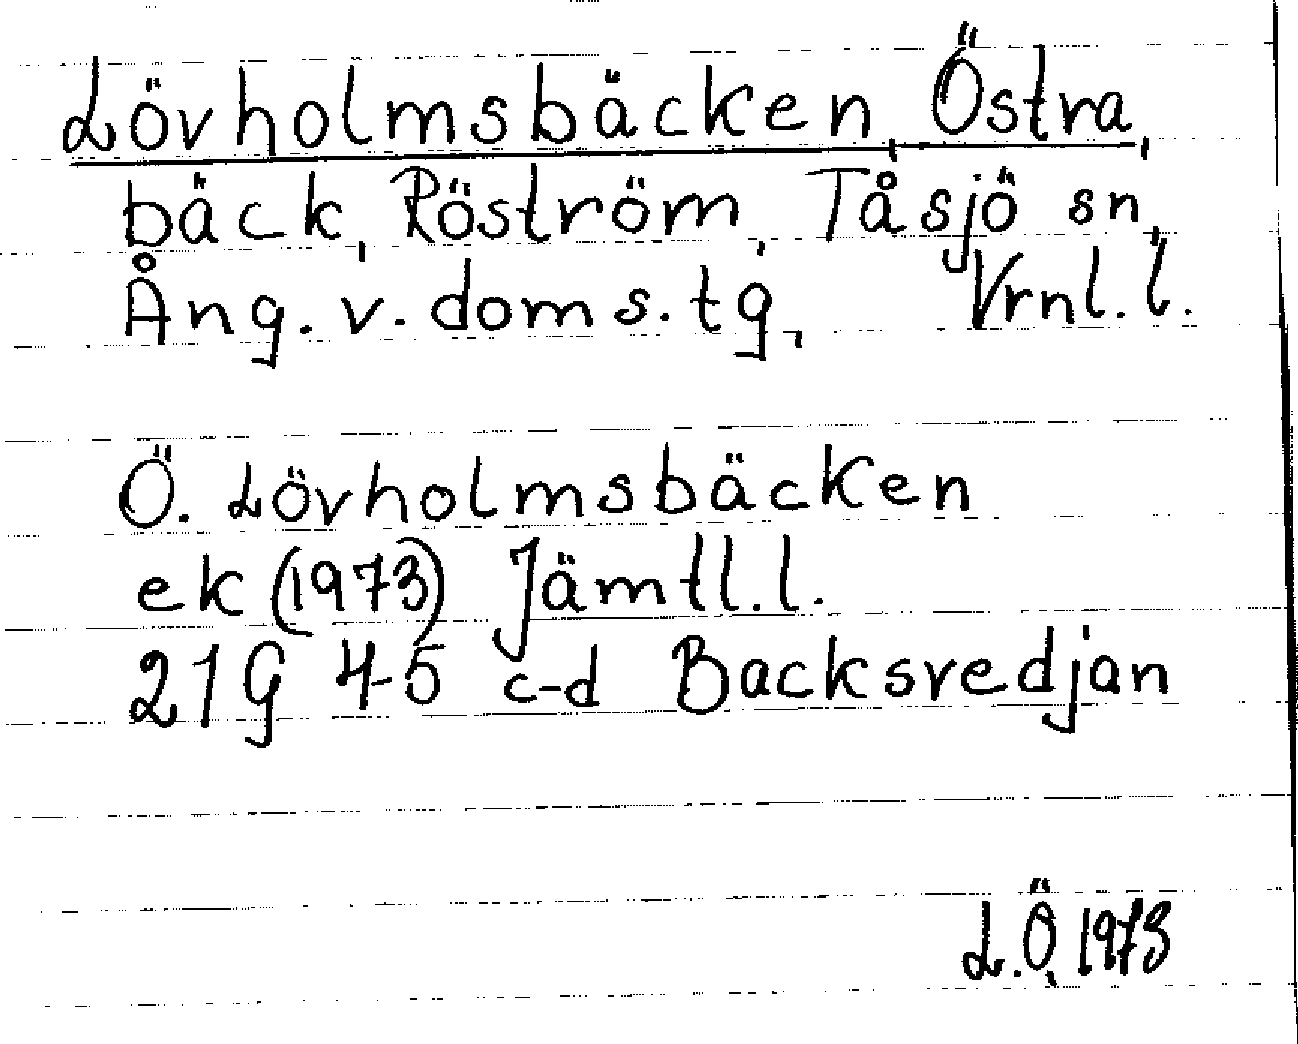 Lövholmsbäcken, Östra,
bäck, Röström, Tåsjö sn,
Ång. v. doms.tg, Vrnl.l.
Ö. Lövholmsbäcken
ek (1973) Jämtl.l.
21G 4-5 c-d Backsvedjan
L.Ö, 1973